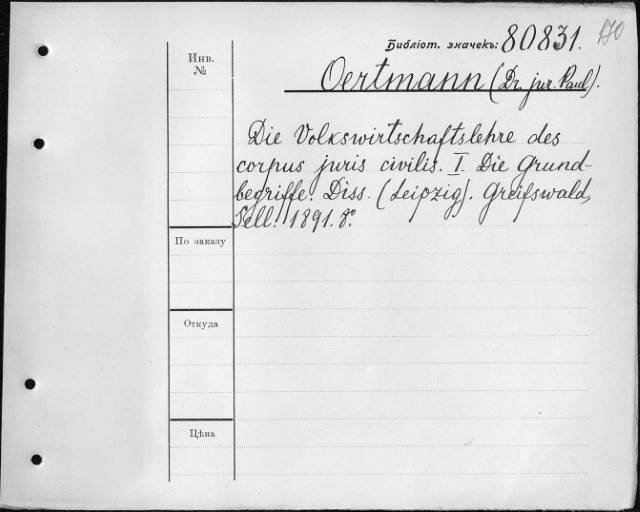 Библіот. значекъ: 80831.
Инв.
№
Oertmann (Dr. jur. Paul).
Die Volkswirtschaftslehre des
corpus juris civilis. I. Die Grund-
begriffe. Diss. (Leipzig). Greifswald,
Sell. 1891. 8º.
По заказу
Откуда
Цѣна